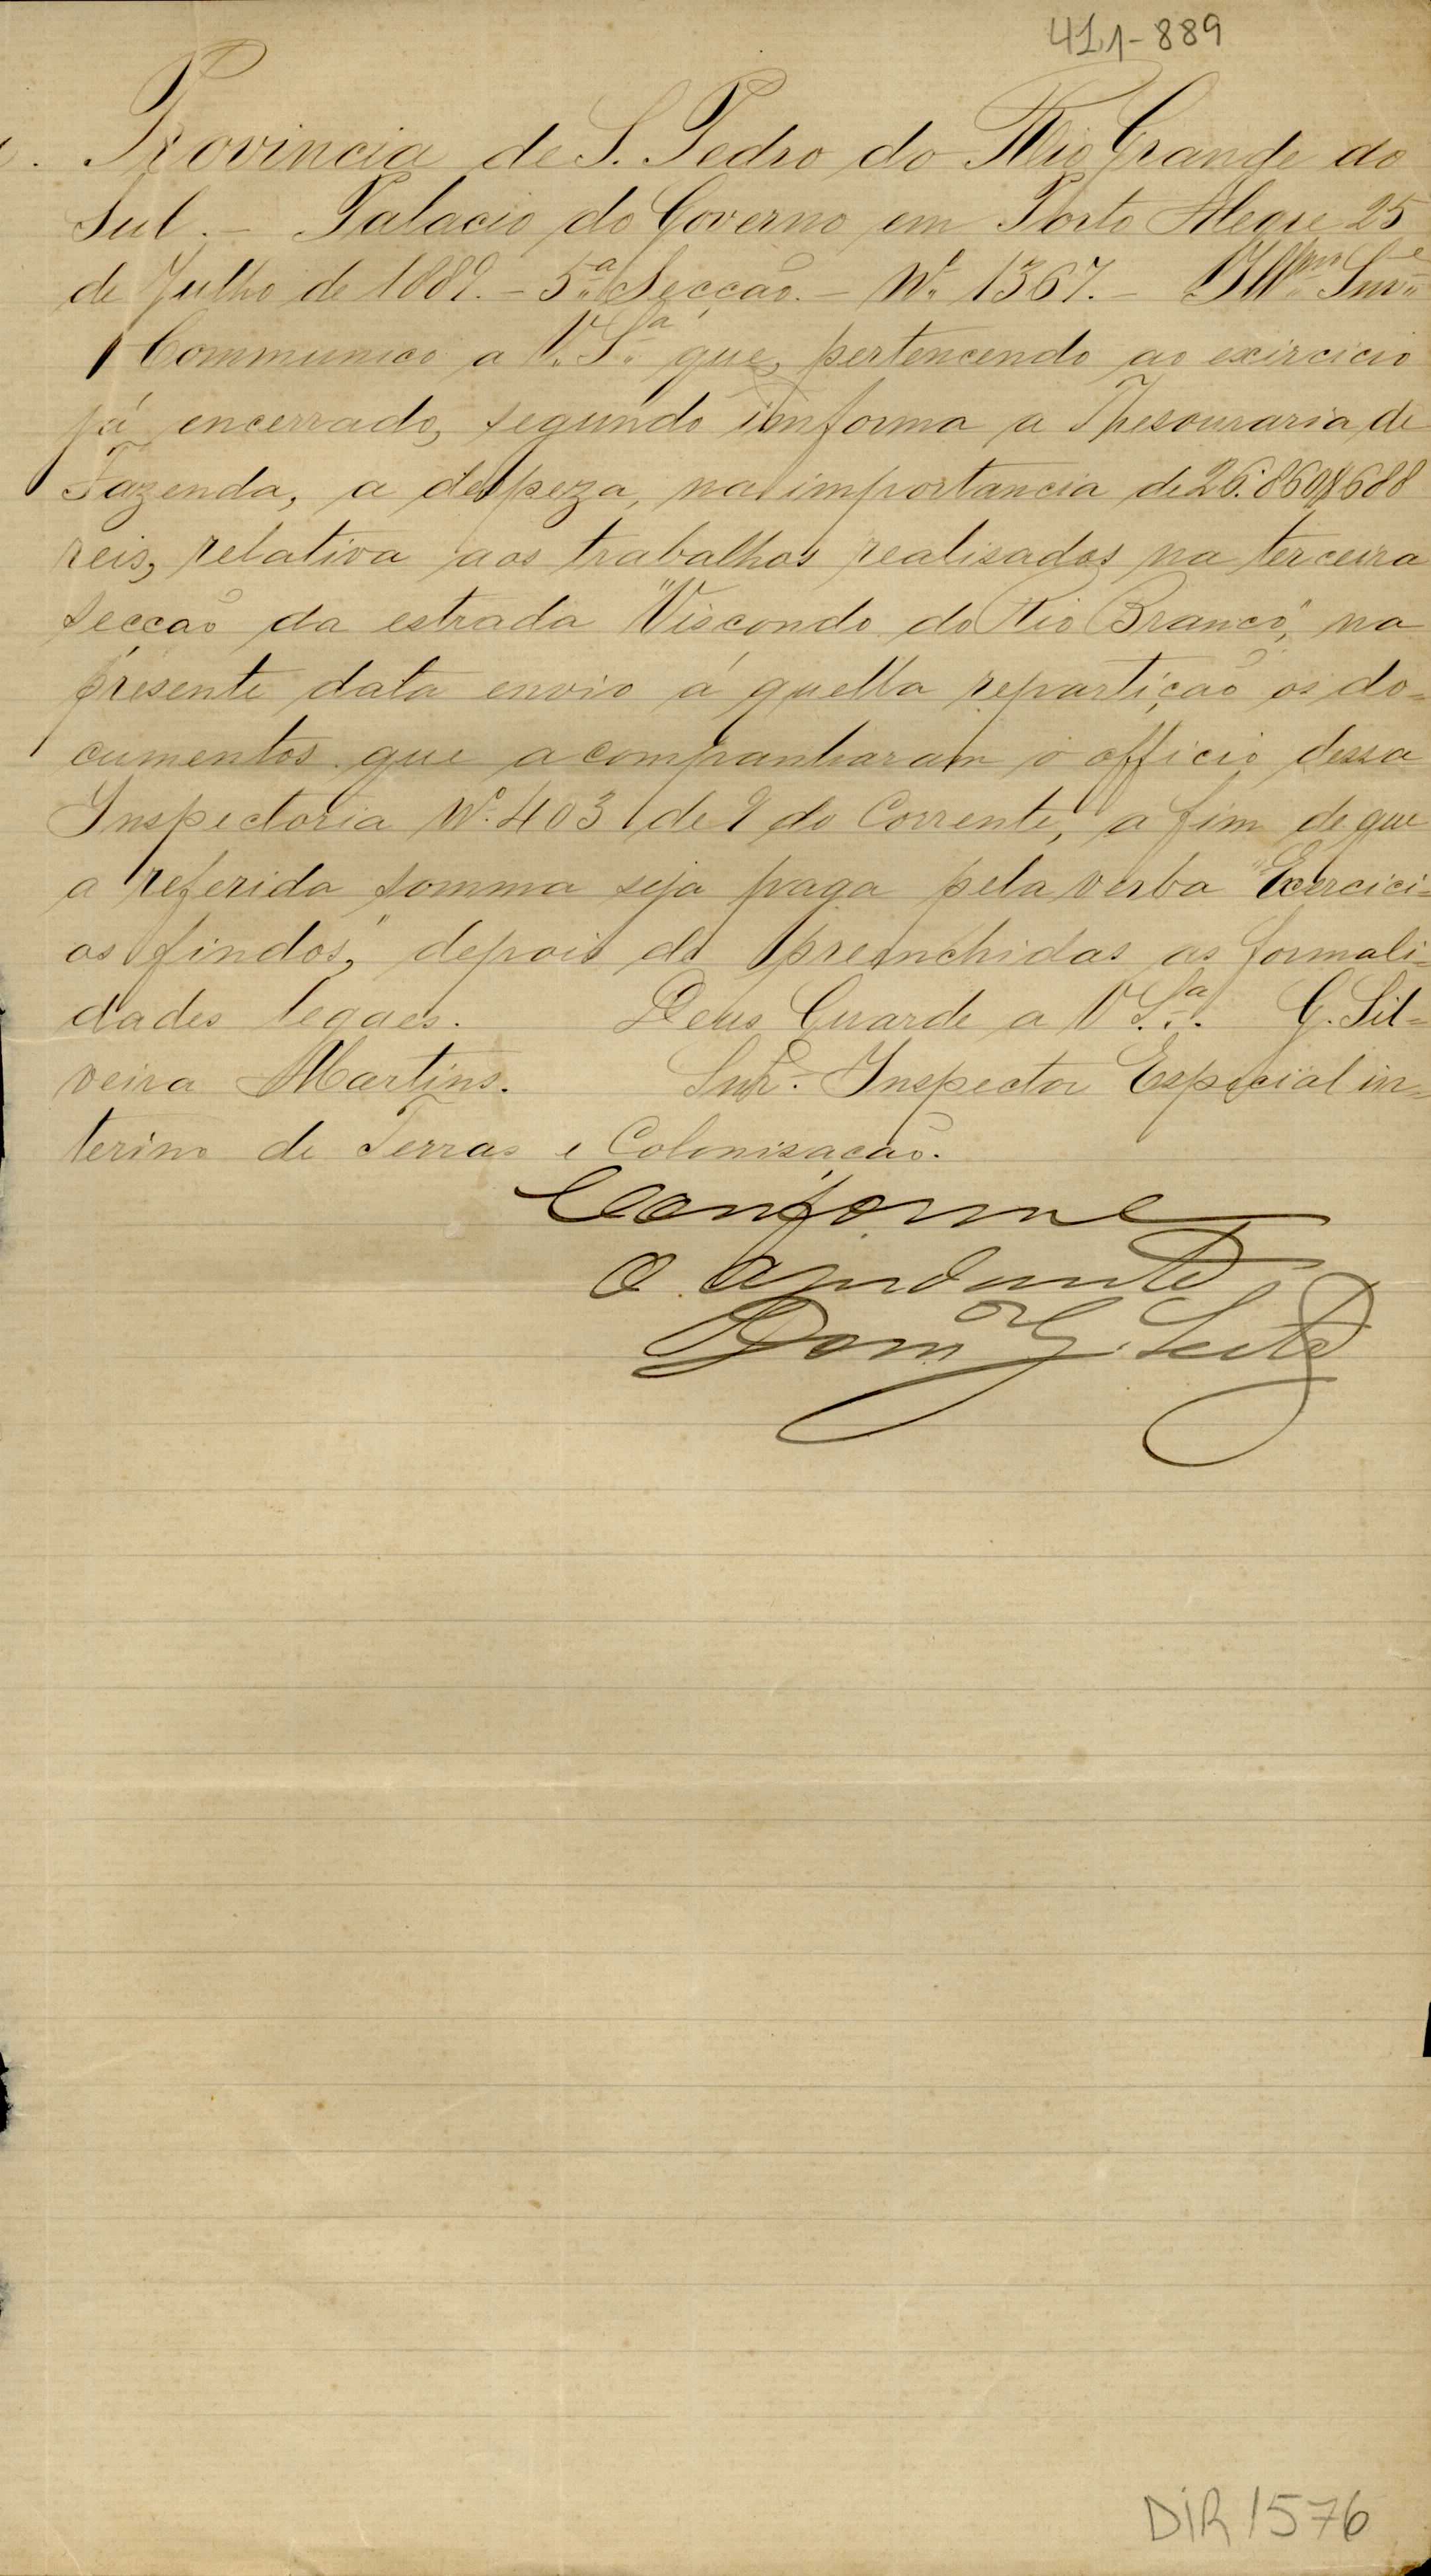 411-889
Provincia de S. Pedro do Rio Grande do
Sul. - Palacio do Governo em Porto Alegre 25
de Julho de 1889. - 5ª Secção. - Nº 1367. - Illmo Snr.
Communico a V. Sª que, pertencendo ao exircicio
já encerrado, segundo imforma a Thesouraria de
Fazenda, a despeza, na importancia de 26:860$688
reis, relativa aos trabalhos realisados na terceira
secção da estrada "Viscondo do Rio Branco", na
presente data envio á quella repartição os do=
cumentos que acompanharam o officio dessa
Inspectoria Nº 403 de 9 do Corrente, a fim de que
a referida somma seja paga pela verba "Exercici=
os findos," depois de preenchidas as formali=
dades legaes. Deus Guarde a V. Sª. G. Sil=
veira Martins. Snr. Inspector Especial in=
terino de Terras e Colonisação.
Conforme
O Ajudante
Domos G. Leite
DIR 1576